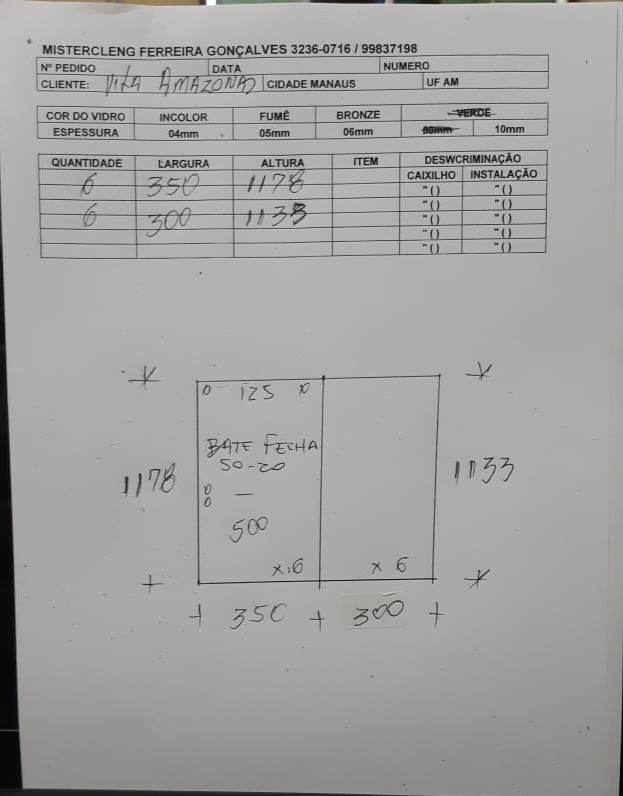 MISTERCLENG FERREIRA GONÇALVES 3236-0716 / 99837198
Nº PEDIDO DATA NUMERO
CLIENTE: VITA AMAZONAS CIDADE MANAUS UF AM
COR DO VIDRO INCOLOR FUMÊ BRONZE VERDE
ESPESSURA 04mm 05mm 06mm 08mm 10mm
QUANTIDADE LARGURA ALTURA ITEM DESWCRIMINAÇÃO
CAIXILHO INSTALAÇÃO
6 350 1178 "() "()
"() "()
6 300 1133 "() "()
"() "()
"() "()
125
BATE FECHA
50-20
1178 1133
500
x:6 x 6
+ 350 + 300 +